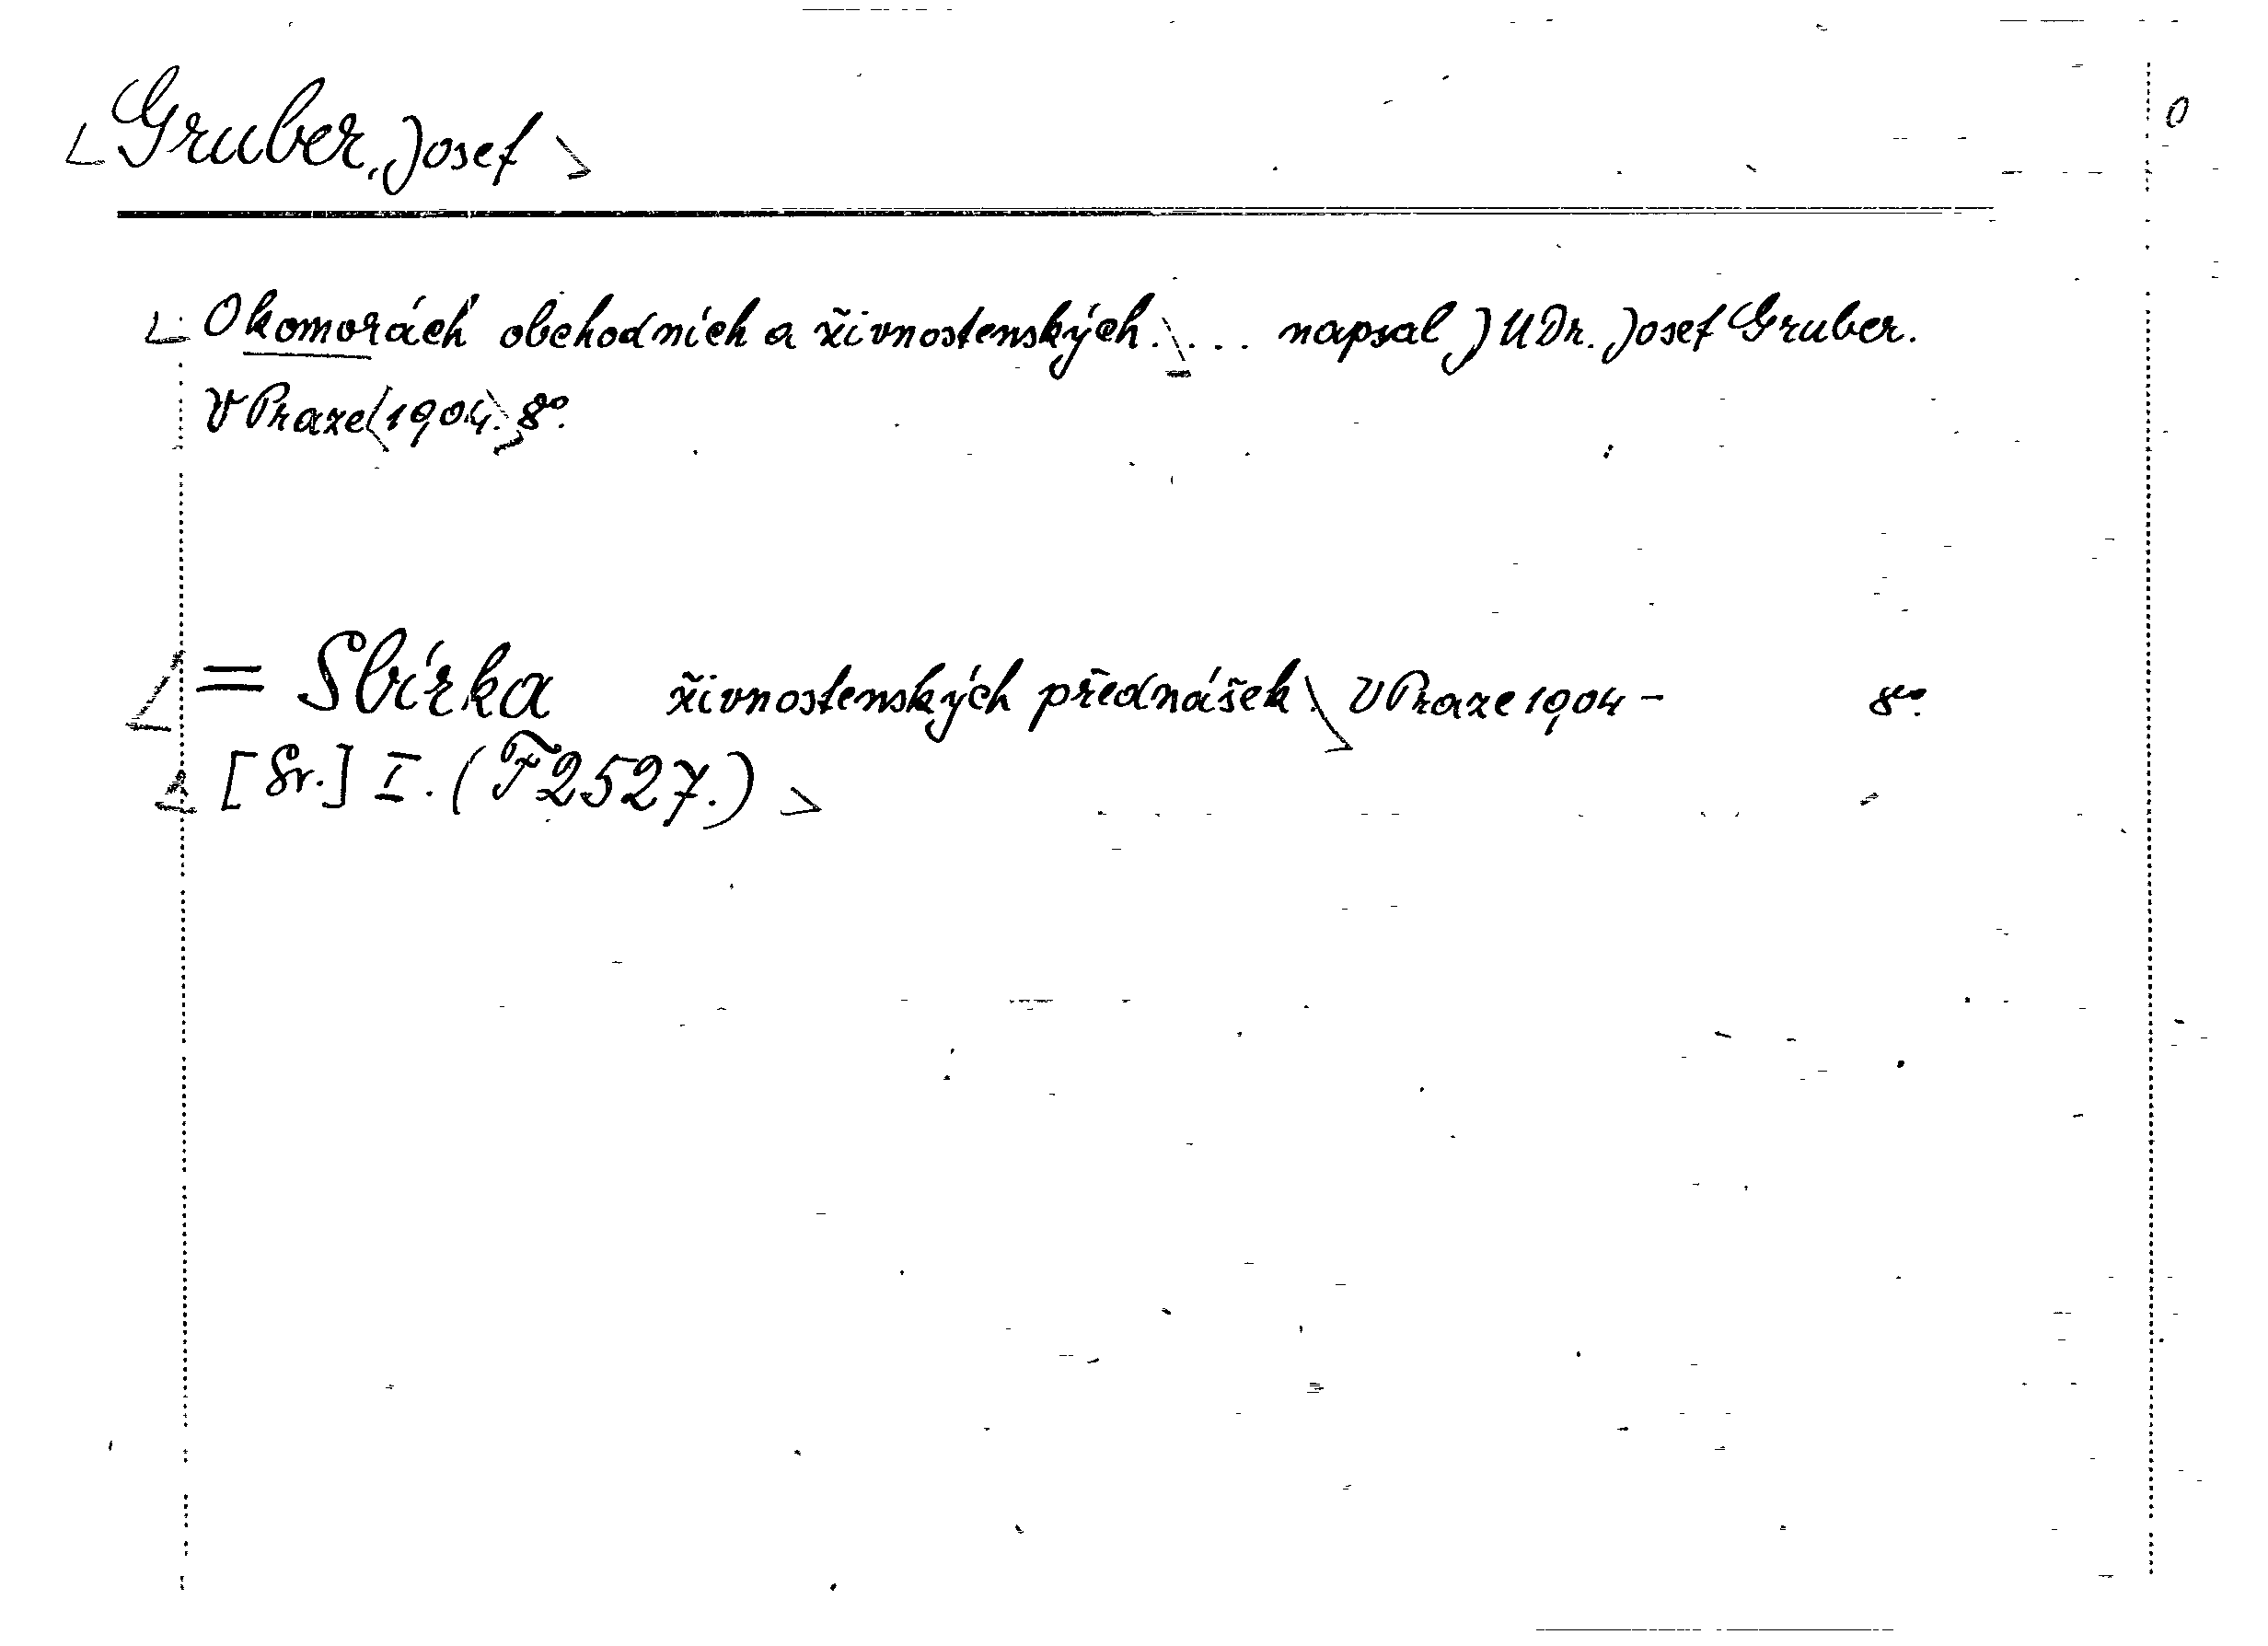 Gruber, Josef
O
O komorách obchodních a živnostenských. ... napsal JUDr. Josef Gruber.
V Praze (1904). 8º.
= Sbírka živnostenských přednášek. V Praze 1904 - 8º.
[Sv.] I. (F 2527.)